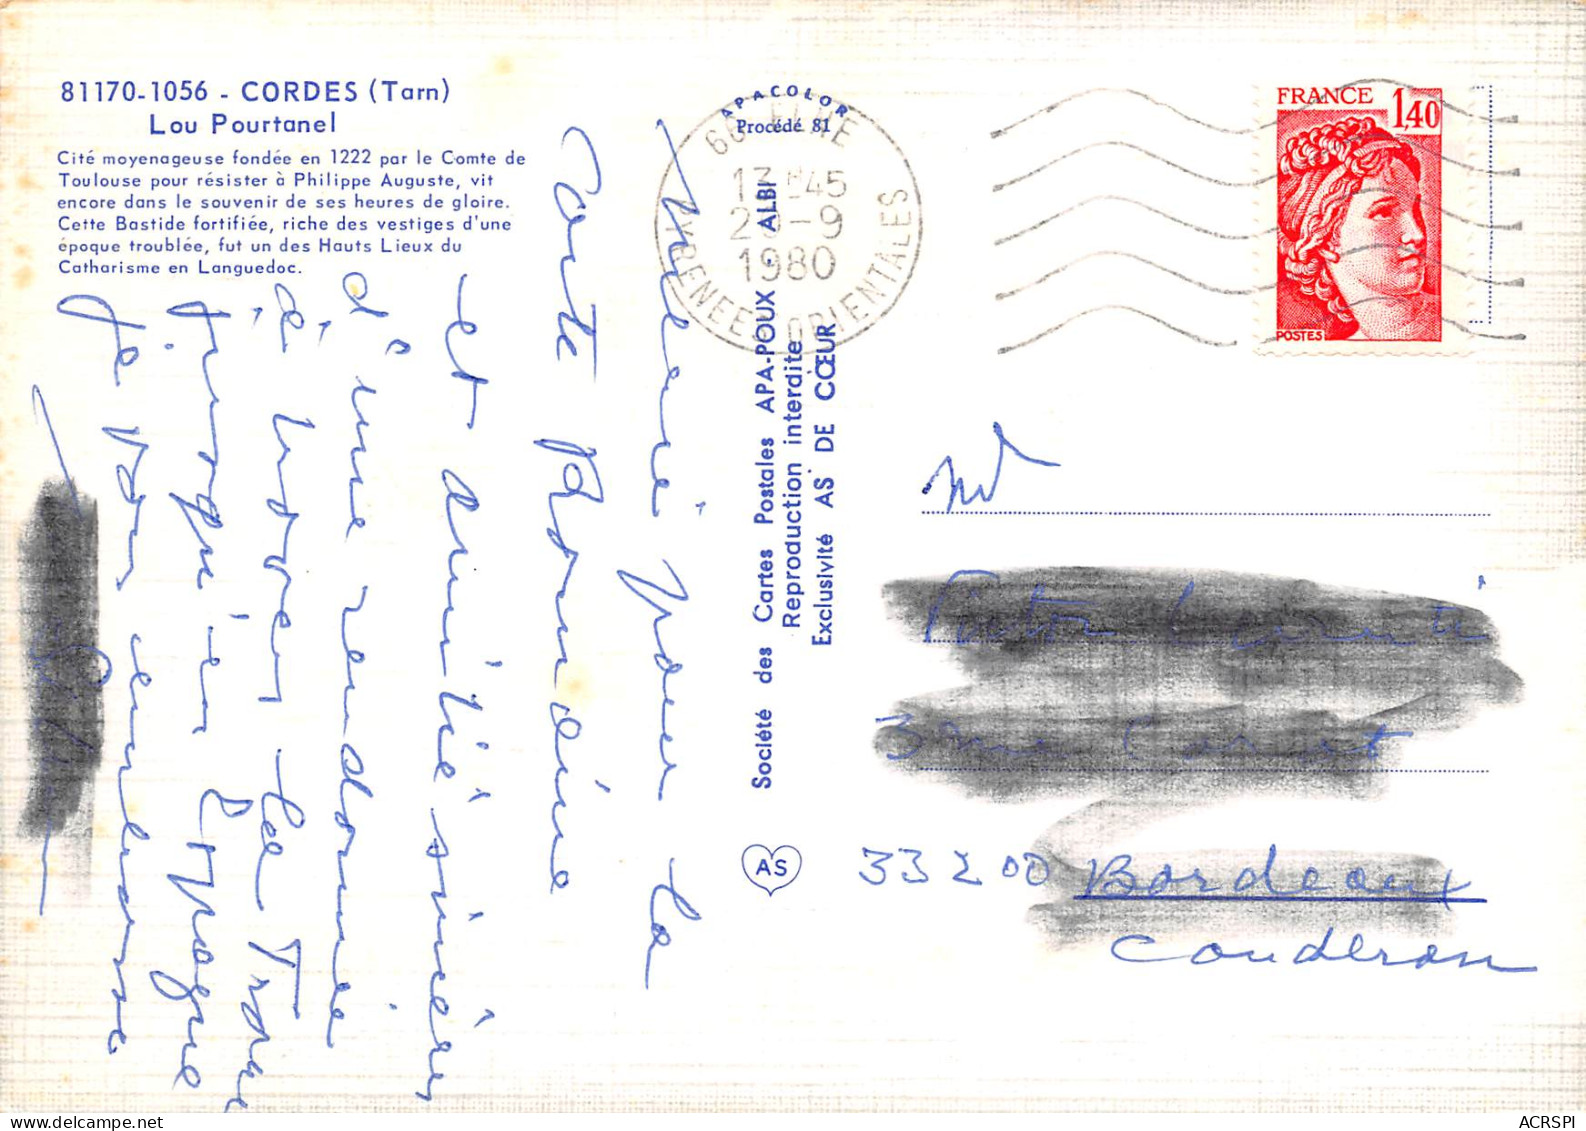 81170-1056 - CORDES (Tarn)
Lou Pourtanel
Cité moyenageuse fondée en 1222 par le Comte de
Toulouse pour résister à Philippe Auguste, vit
encore dans le souvenir de ses heures de gloire.
Cette Bastide fortifiée, riche des vestiges d'une
époque troublée, fut un des Hauts Lieux du
Catharisme en Languedoc.
APACOLOR
Procédé 81
66 ELNE
13H45
-9
1980
PYRENEES ORIENTALES
FRANCE
1,40
POSTES
Société des Cartes Postales APA-POUX - ALBI
Reproduction interdite
Exclusivité AS DE CŒUR
AS
pour la
carte
et amitié sincère
d'une randonnée
à
jusqu'en Espagne
je vous embrasse
33200 Bordeaux
Couderan
ACRSPI